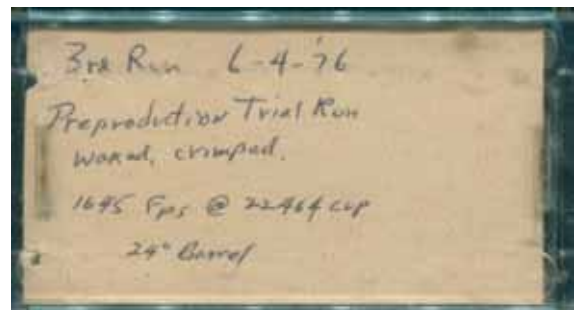 3rd Run 6-4-'76
Preproduction Trial Run
Waxed, crimped.
1645 Fps @ 22464 cup
24" Barrel